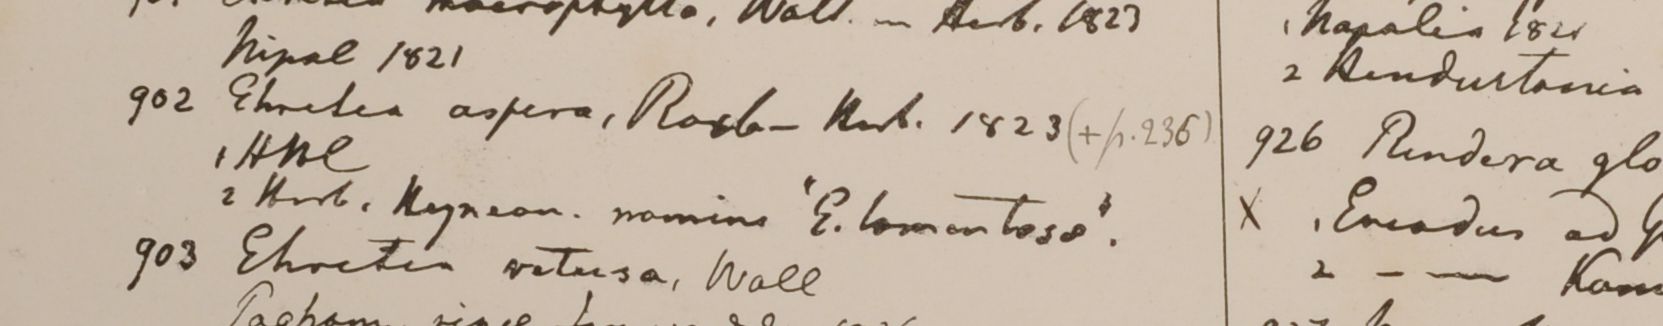 Ehretia macrophylla, Wall. in Herb. 1823
Nipal 1821
902 Ehretia aspera, Roxb - Herb. 1823 (+ p. 236)
1 HBC
2 Herb. Heynean. nomine "E. tomentosa".
903 Ehretia retusa, Wall
1 Napalia 1821
2 Hindustania
926 Rindera glo
X 1 Emodus ad G
2 - — Kam